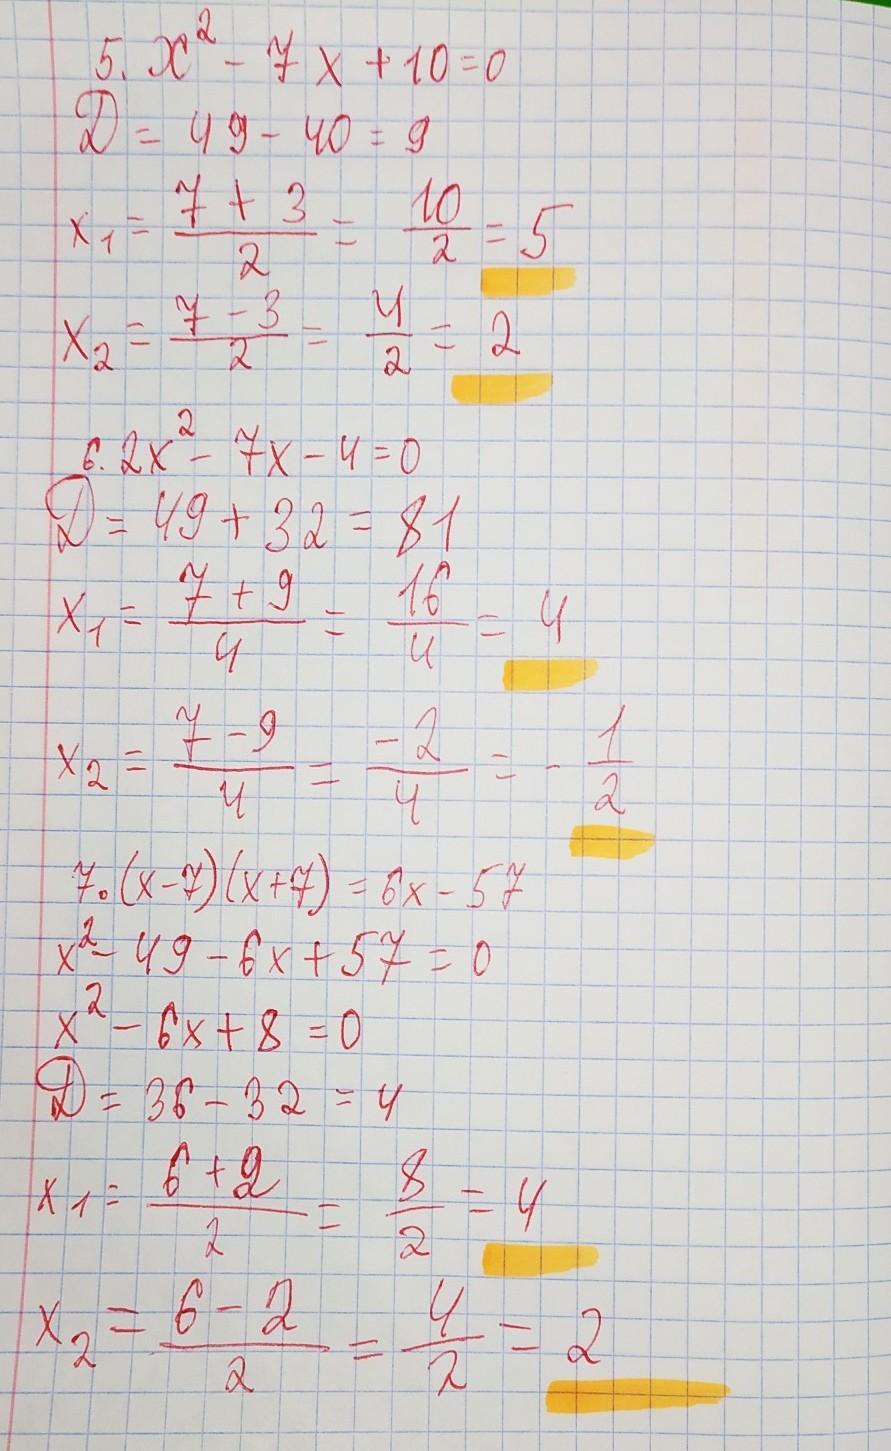 5. x² - 7x + 10 = 0
D = 49 - 40 = 9
x₁ = (7 + 3)/2 = 10/2 = 5
x₂ = (7 - 3)/2 = 4/2 = 2
6. 2x² - 7x - 4 = 0
D = 49 + 32 = 81
x₁ = (7 + 9)/4 = 16/4 = 4
x₂ = (7 - 9)/4 = -2/4 = - 1/2
7. (x - 7)(x + 7) = 6x - 57
x² - 49 - 6x + 57 = 0
x² - 6x + 8 = 0
D = 36 - 32 = 4
x₁ = (6 + 2)/2 = 8/2 = 4
x₂ = (6 - 2)/2 = 4/2 = 2